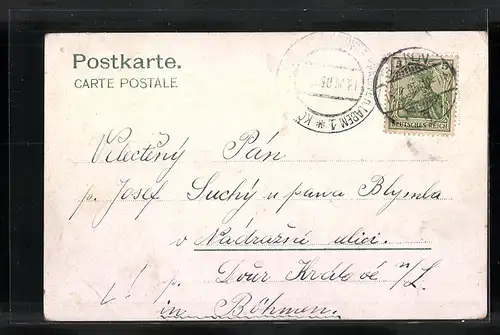 Postkarte.
CARTE POSTALE
DEUTSCHES REICH
Velectěný Pán
p. Josef Suchý u pana Blymla
v Nádražní ulici.
Dvůr Králové n/L.
in Böhmen.